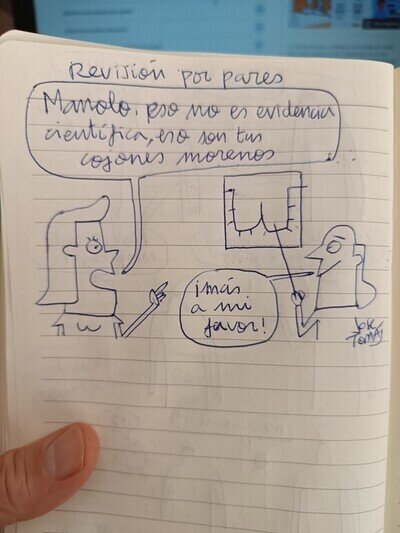 Revisión por pares
Manolo, eso no es evidencia
científica, eso son tus
cojones morenos
¡más
a mi
favor!
José
Tomás